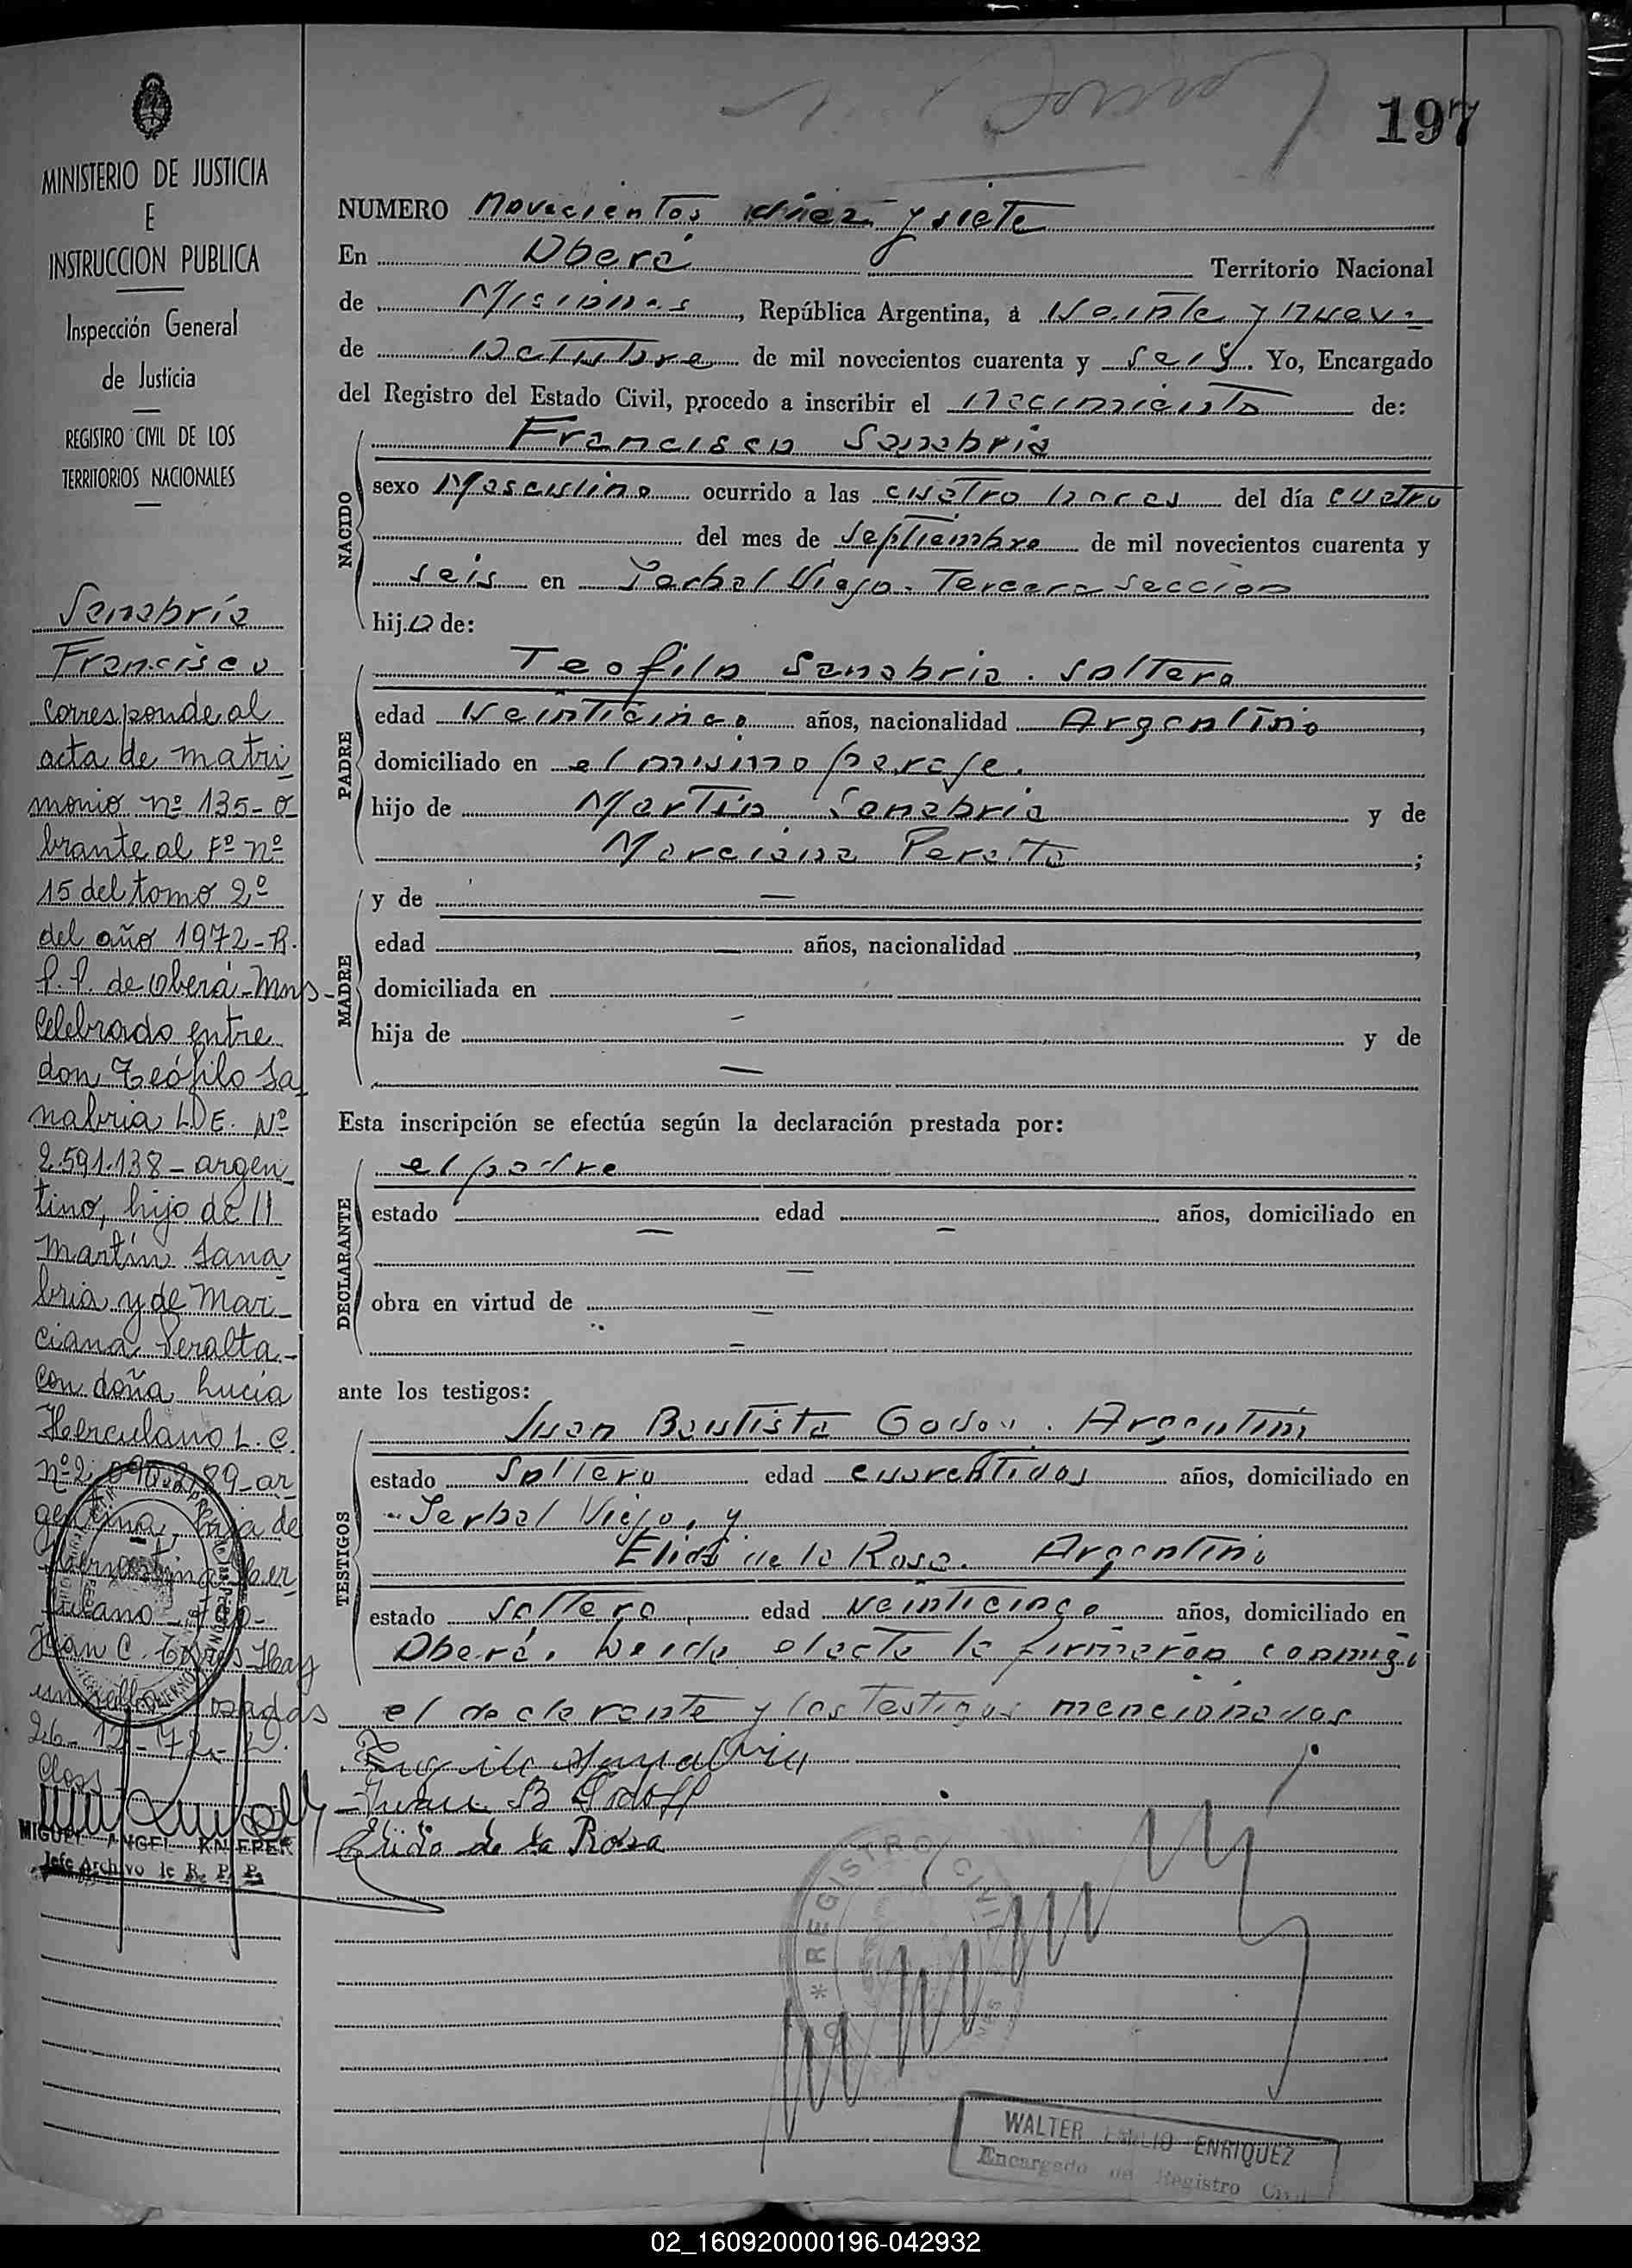 197
MINISTERIO DE JUSTICIA
E
INSTRUCCION PUBLICA
Inspección General
de Justicia
REGISTRO CIVIL DE LOS
TERRITORIOS NACIONALES
Sanabria
Francisco
Corresponde al
acta de matri
monio nº 135-o
brante al Fº nº
15 del tomo 2º
del año 1972-R.
P. P. de Oberá-Mnes-
Celebrado entre
don Teófilo Sa
nabria L.D.E. Nº
2.591.138 - argen
tino, hijo de
Martín Sana
bria y de Mar-
ciana Peralta.-
Con doña Lucia
Herculano L. C.
argentina, hija de
Juan C. Torres Hay
un sello
26-12-72-
MIGUEL ANGEL KNIEPER
Jefe Archivo de R. P. P.
NUMERO novecientos diez y siete
En Oberá Territorio Nacional
de Misiones, República Argentina, a Veinte y nueve
de Octubre de mil novecientos cuarenta y seis. Yo, Encargado
del Registro del Estado Civil, procedo a inscribir el nacimiento de:
NACIDO
Francisco Sanabria
sexo Masculino ocurrido a las cuatro horas del día cuatro
del mes de Septiembre de mil novecientos cuarenta y
seis en Yerbal Viejo. Tercera seccion
hijo de:
PADRE
Teofilo Sanabria. soltero
edad Veinticinco años, nacionalidad Argentino,
domiciliado en el mismo paraje.
hijo de Martin Sanabria y de
Marciana Peralta;
MADRE
y de —
edad años, nacionalidad ,
domiciliada en
hija de — y de
—
Esta inscripción se efectúa según la declaración prestada por:
DECLARANTE
el padre
estado — edad — años, domiciliado en
—
obra en virtud de —
—
ante los testigos:
TESTIGOS
Juan Bautista Godoy. Argentino
estado Soltero edad cuarentidos años, domiciliado en
Yerbal Viejo, y
Elido de la Rosa. Argentino
estado soltero, edad veinticinco años, domiciliado en
Oberá. Leida el acta la firmaron conmigo
el declarante y los testigos mencionados
Juan B Godoy
Elido de la Rosa
REGISTRO CIVIL
WALTER EMILIO ENRIQUEZ
Encargado del Registro Civil
02_160920000196-042932